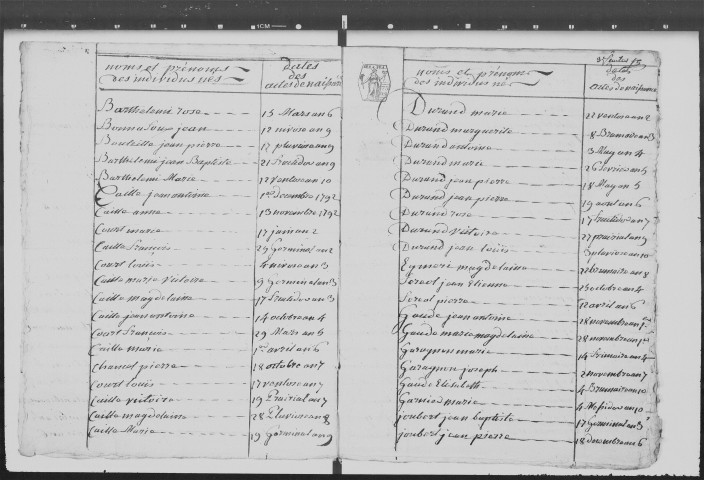 noms et prénoms
des individus nés
dates
des
actes de naissance
Barthelemi rose 15 Mars an 6
jean 12 nivose an 9
jean pierre 17 pluviose an 9
Barthelemi jean Baptiste 21 fructidor an 9
Barthelemi Marie 12 Ventose an 10
Caille jean antoine 1er decembre 1792
Caille anne 13 novembre 1792
Court marie 17 janv an 2
Caille François 29 Germinal an 2
Court louis 4 nivose an 3
Caille marie victoire 19 Germinal an 3
Caille magdelaine 17 fructidor an 3
Caille jean antoine 14 octobre an 4
Court François 29 Mars an 6
Caille marie 1er avril an 6
Chanel pierre 18 octobre an 7
Court louis 17 ventose an 7
Caille victoire 19 Prairial an 7
Caille magdelaine 28 Pluviose an 8
Caille Marie 19 Germinal an 9
noms et prénoms
des individus nés
dates
des
actes de naissance
Durand marie 22 ventose an 2
Durand marguerite 8 Brumaire an 3
Durand antoine 3 May an 4
Durand marie 26 fevrier an 5
Durand jean pierre 18 May an 5
Durand jean pierre 19 aout an 6
Durand rose 17 fructidor an 7
Durand Victoire 27 prairial an 9
Durand jean louis 3 pluviose an 10
Eymeri magdelaine 22 brumaire an 8
jean Etienne 15 octobre an 4
pierre 12 avril an 6
Gaude jean antoine 18 novembre an 1er
Gaude marie magdelaine 28 novembre an 1er
Garagnon marie 14 frimaire an 4
Garagnon joseph 2 novembre an 7
Gaude Elisabeth 4 Brumaire an 10
Garnier marie 4 Messidor an 10
joubert jean baptiste 17 Germinal an 3
joubert jean pierre 18 decembre an 6